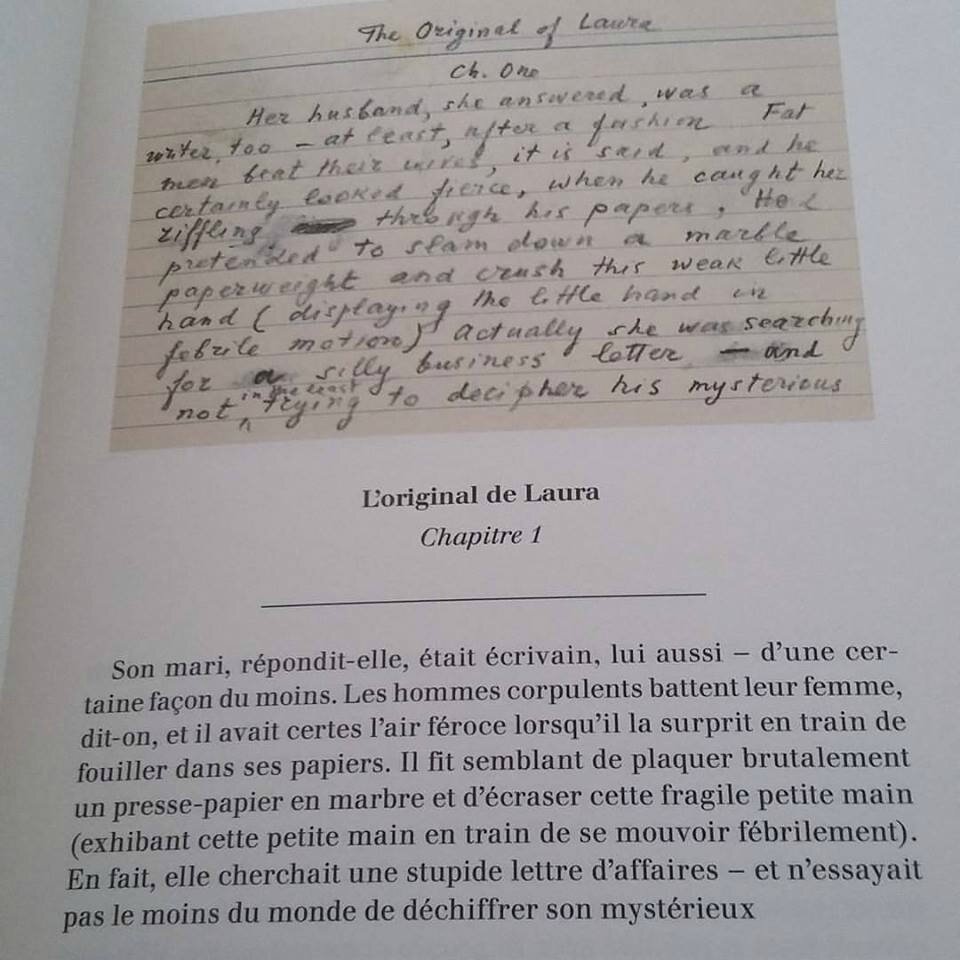 The Original of Laura
Ch. One
Her husband, she answered, was a
writer, too – at least, after a fashion. Fat
men beat their wives, it is said, and he
certainly looked fierce, when he caught her
riffling through his papers. He
pretended to slam down a marble
paperweight and crush this weak little
hand (displaying the little hand in
febrile motion) Actually she was searching
for a silly business letter – and
not in the least trying to decipher his mysterious
L'original de Laura
Chapitre 1
Son mari, répondit-elle, était écrivain, lui aussi – d'une cer-
taine façon du moins. Les hommes corpulents battent leur femme,
dit-on, et il avait certes l'air féroce lorsqu'il la surprit en train de
fouiller dans ses papiers. Il fit semblant de plaquer brutalement
un presse-papier en marbre et d'écraser cette fragile petite main
(exhibant cette petite main en train de se mouvoir fébrilement).
En fait, elle cherchait une stupide lettre d'affaires – et n'essayait
pas le moins du monde de déchiffrer son mystérieux